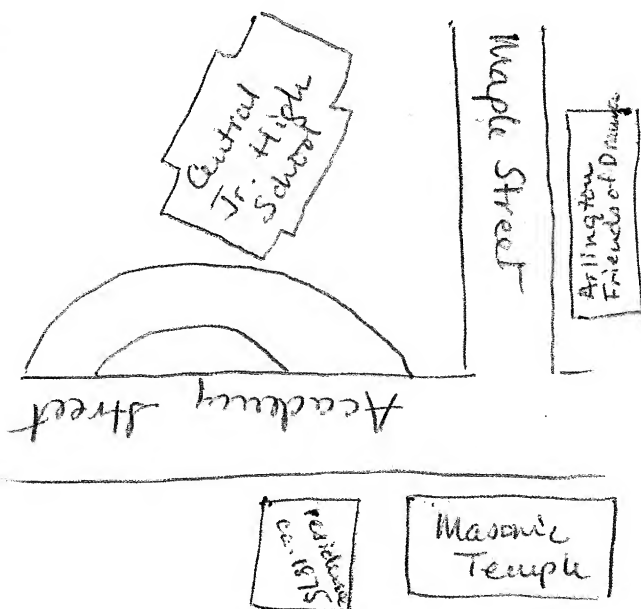 Central
Jr. High
School
Maple Street
Arlington
Friends of Drama
Academy Street
residence
ca. 1875
Masonic
Temple